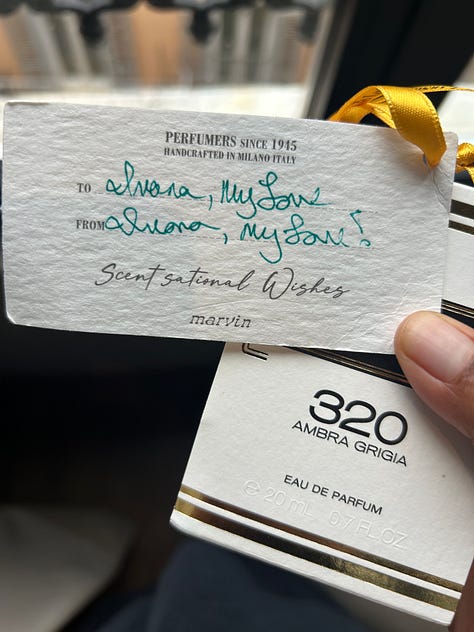 PERFUMERS SINCE 1945
HANDCRAFTED IN MILANO ITALY
TO Ivana, My Love
FROM Ivana, My Love!
Scentsational Wishes
marvin
320
AMBRA GRIGIA
EAU DE PARFUM
℮ 20 mL 0.7 FL.OZ